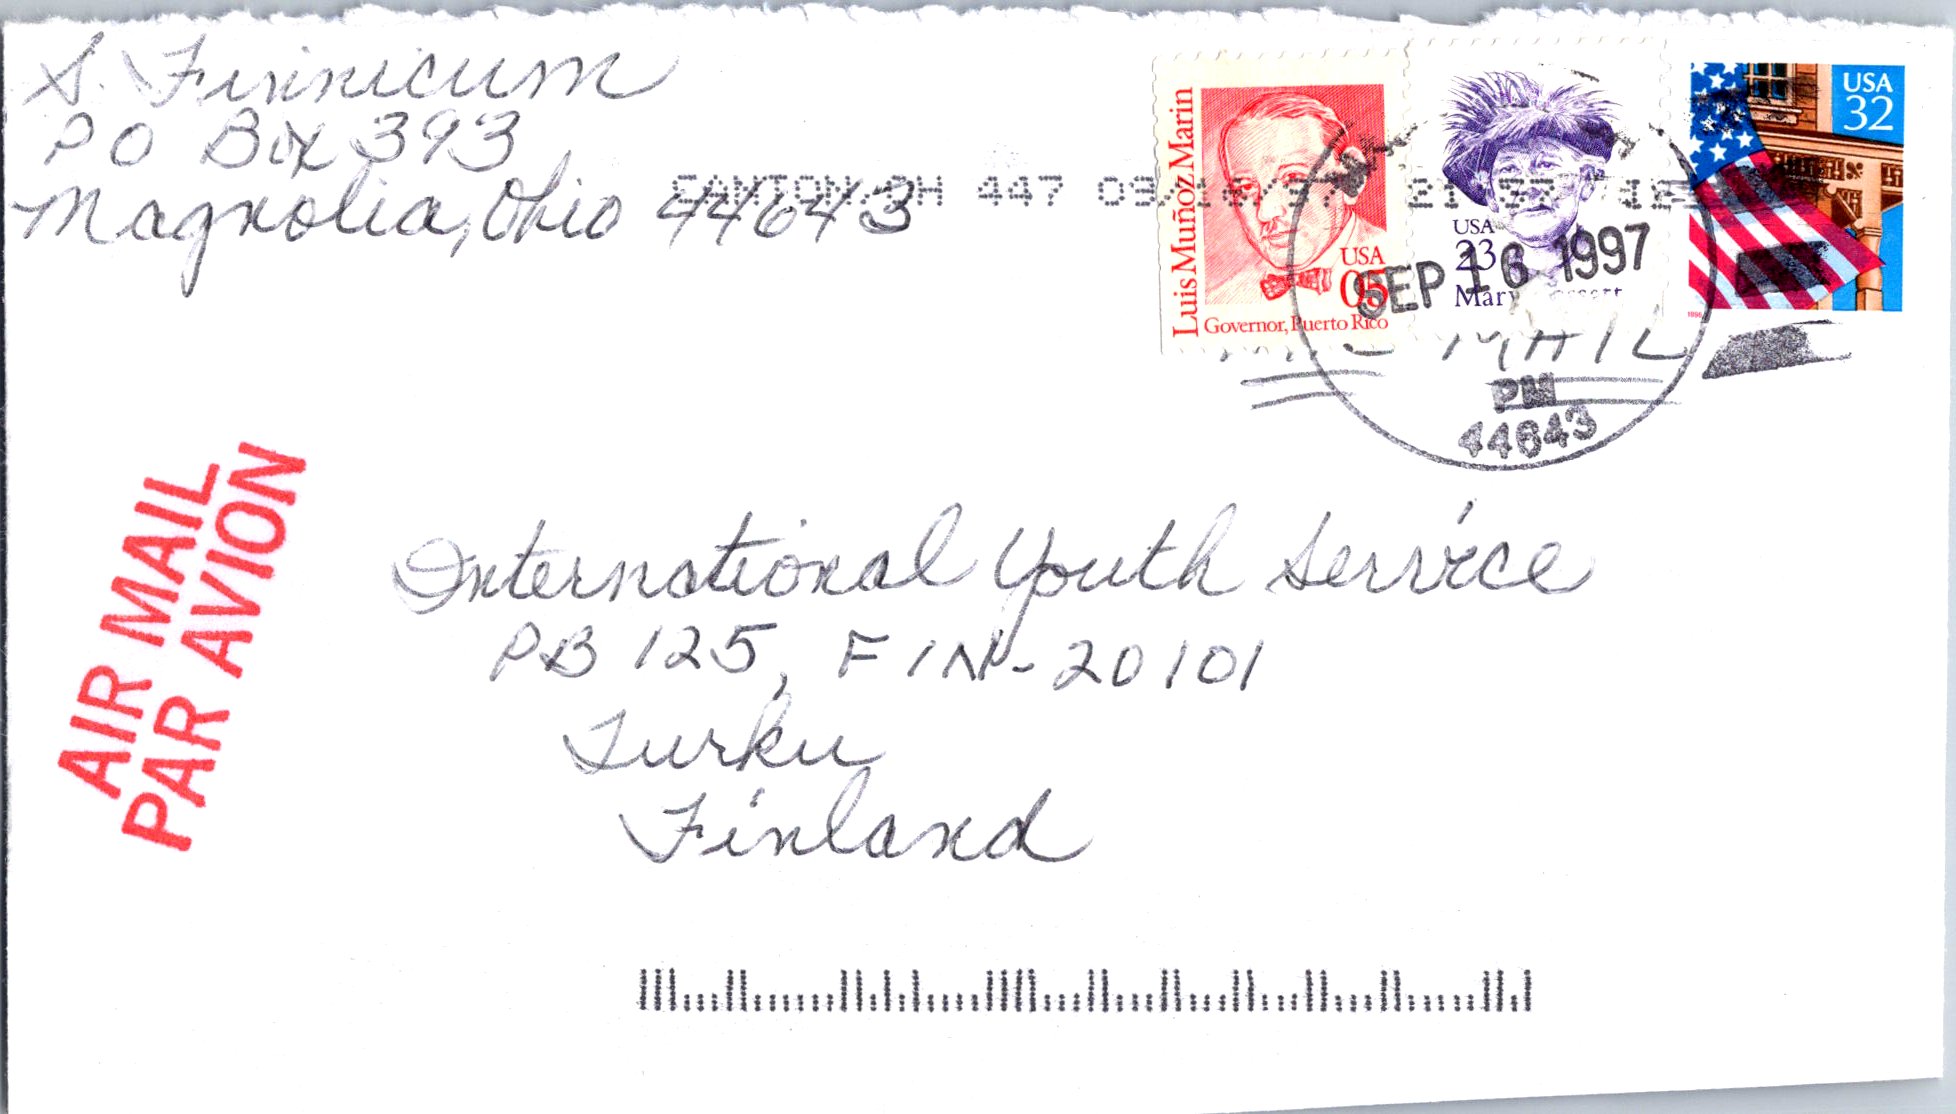 S. Finnicum
PO Box 393
Magnolia, Ohio 44643
CANTON, OH 447
Luis Muñoz Marin
USA
05
Governor, Puerto Rico
USA
23
Mary
USA
32
SEP 16 1997
MAIL
PM
44643
AIR MAIL
PAR AVION
International Youth Service
PB 125, FIN-20101
Turku
Finland